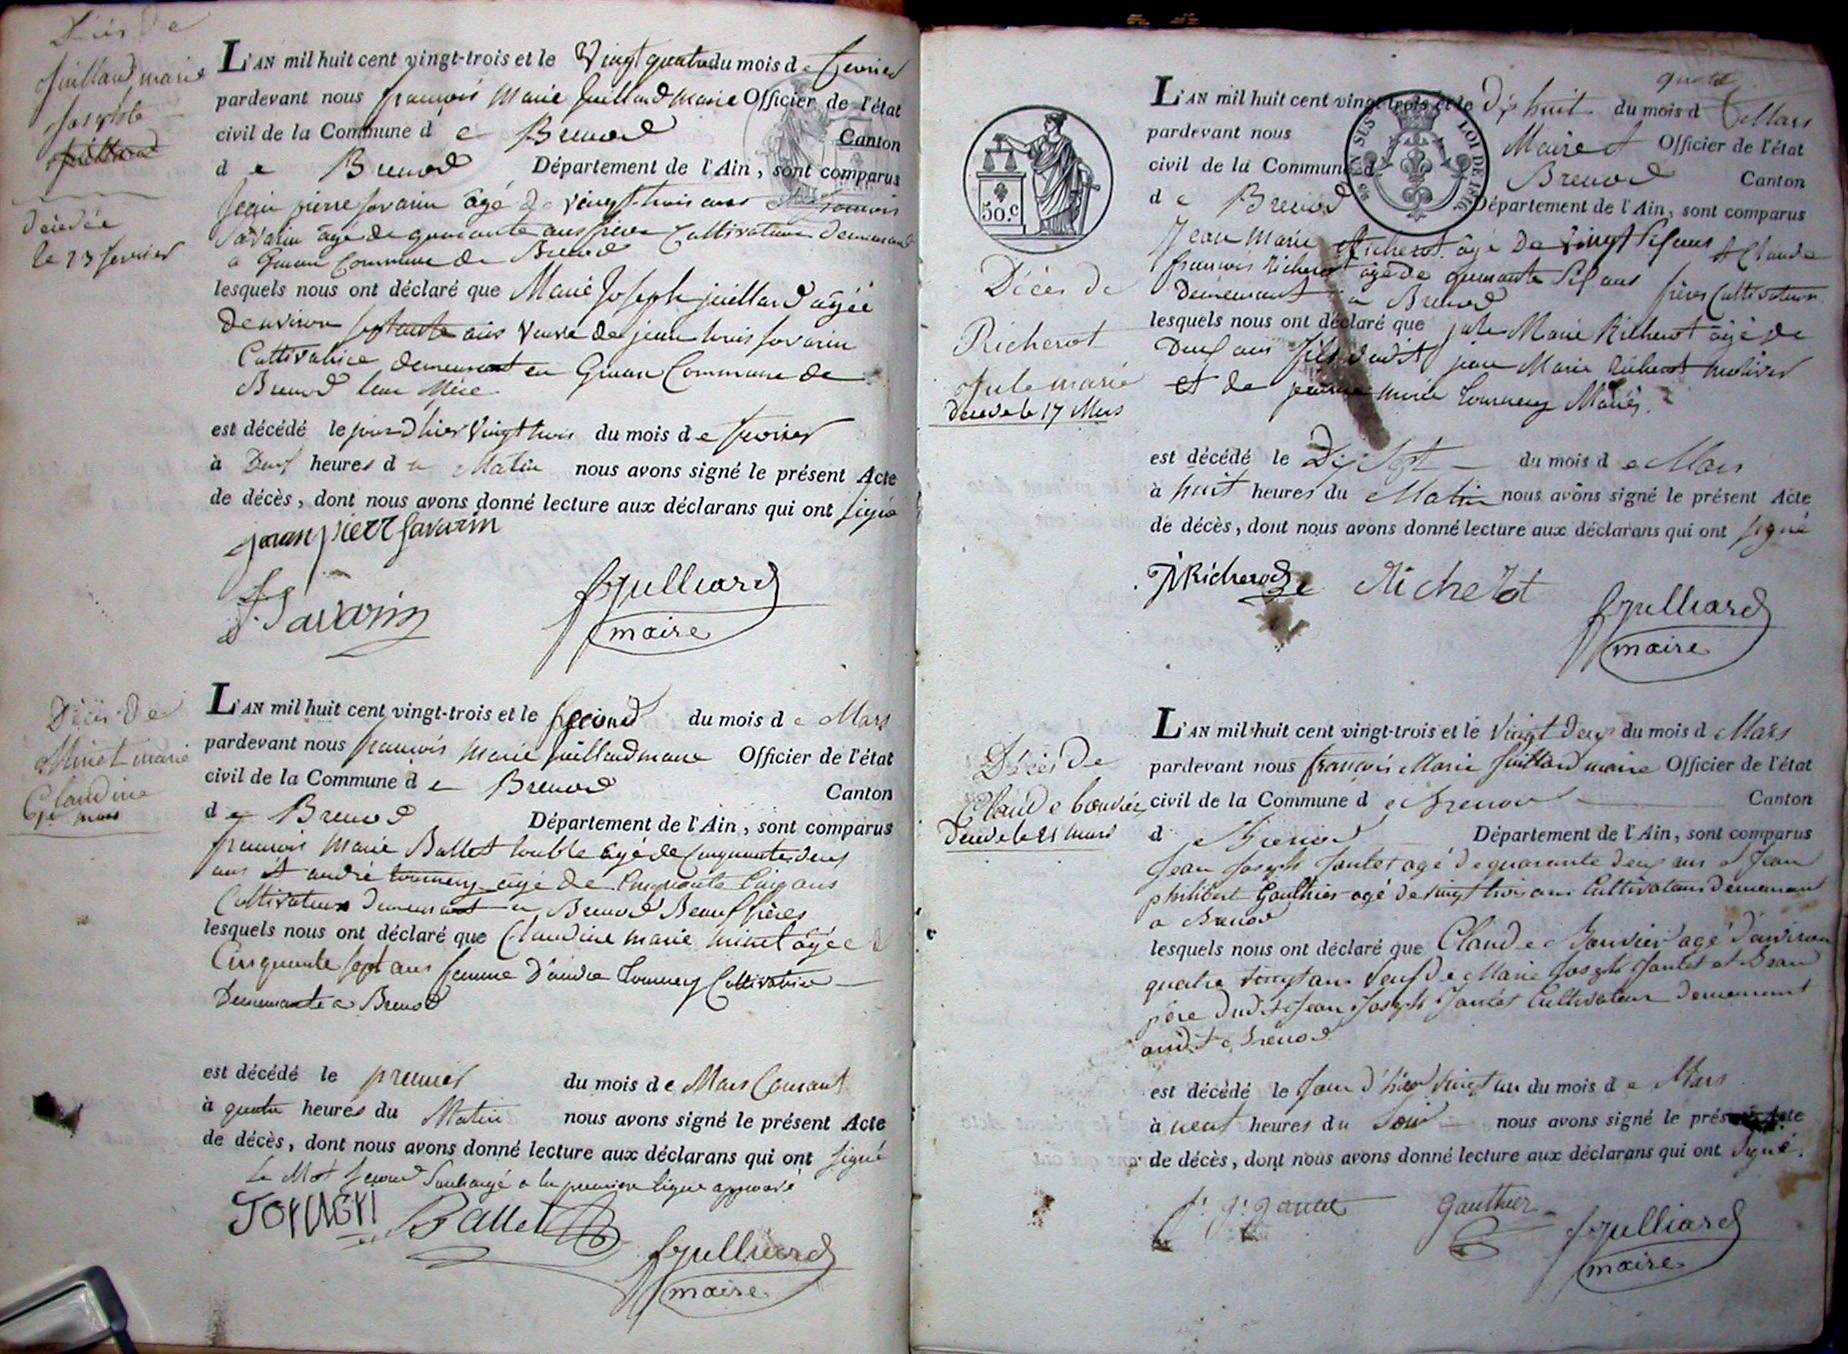 Décès de
Juilland marie
Josephte
décédée
le 23 fevrier
L'AN mil huit cent vingt-trois et le Vingt quatre du mois de fevrier
pardevant nous francois Marie Juilland maire Officier de l'état
civil de la Commune de Brenod Canton
de Brenod Département de l'Ain, sont comparus
Jean pierre Savarin âgé de vingt-trois ans et francois
Savarin âgé de quarante ans frères Cultivateurs demeurant
a Commune de Brenod
lesquels nous ont déclaré que Marie Joseph juilland âgée
denviron septante ans Veuve de jean louis Savarin
Cultivatrice demeurant en Commune de
Brenod leur Mère
est décédé le jour d'hier Vingt trois du mois de fevrier
à Deux heures du Matin nous avons signé le présent Acte
de décès, dont nous avons donné lecture aux déclarans qui ont signé
jean pierr Savarin
f. Savarin
fs juilliard
maire
Décès de
Minet marie
Claudine
1er mars
L'AN mil huit cent vingt-trois et le second du mois de Mars
pardevant nous francois Marie juilland maire Officier de l'état
civil de la Commune de Brenod Canton
de Brenod Département de l'Ain, sont comparus
francois Marie Ballet âgé de Cinquante deux
ans et andré tournery âgé de Cinquante Cinq ans
Cultivateurs demeurant a Brenod Beaux frères
lesquels nous ont déclaré que Claudine marie minet âgée de
Cinquante sept ans femme D'andré Tournery Cultivatrice
Demeurante a Brenod
est décédé le premier du mois de Mars Courant
à quatre heures du Matin nous avons signé le présent Acte
de décès, dont nous avons donné lecture aux déclarans qui ont signé
Le Mot second Surchargé a la premiere ligne approuvé
Ballet
fs juilliard
maire
Décès de
Richerot
Jule marie
décédé le 17 Mars
50 c
LOI DE 1816
L'AN mil huit cent vingt-trois et le Dix huit du mois de Mars
pardevant nous Maire et Officier de l'état
civil de la Commune de Brenod Canton
de Brenod Département de l'Ain, sont comparus
Jean Marie Richerot âgé De Vingt Six ans et Claude
francois Richerot âgé de quarante Six ans frères Cultivateurs
Demeurant a Brenod
lesquels nous ont déclaré que jule Marie Richerot âgé de
Deux ans fils dudit jean Marie Richerot
et de marie tournery Mariés.
est décédé le Dix Sept du mois de Mars
à huit heures du Matin nous avons signé le présent Acte
de décès, dont nous avons donné lecture aux déclarans qui ont signé
Richerod Richerot
fs juilliard
maire
Décès De
Claude bouvier
décédé le 21 mars
L'AN mil huit cent vingt-trois et le Vingt deux du mois de Mars
pardevant nous françois Marie juilland maire Officier de l'état
civil de la Commune de Brenod Canton
de Brenod Département de l'Ain, sont comparus
Jean Joseph Jantet agé de quarante deux ans et Jean
philibert Gauthier agé de vingt trois ans Cultivateurs demeurant
a Brenod
lesquels nous ont déclaré que Claude Bouvier agé d'environ
quatre vingt ans Veuf de Marie Joseph Jantet et Beau
père dudit Jean Joseph Jantet Cultivateur demeurant
audit Brenod
est décédé le Jour d'hier vingt un du mois de Mars
à neuf heures du Soir nous avons signé le présent Acte
de décès, dont nous avons donné lecture aux déclarans qui ont signé.
Gauthier
fs juilliard
maire